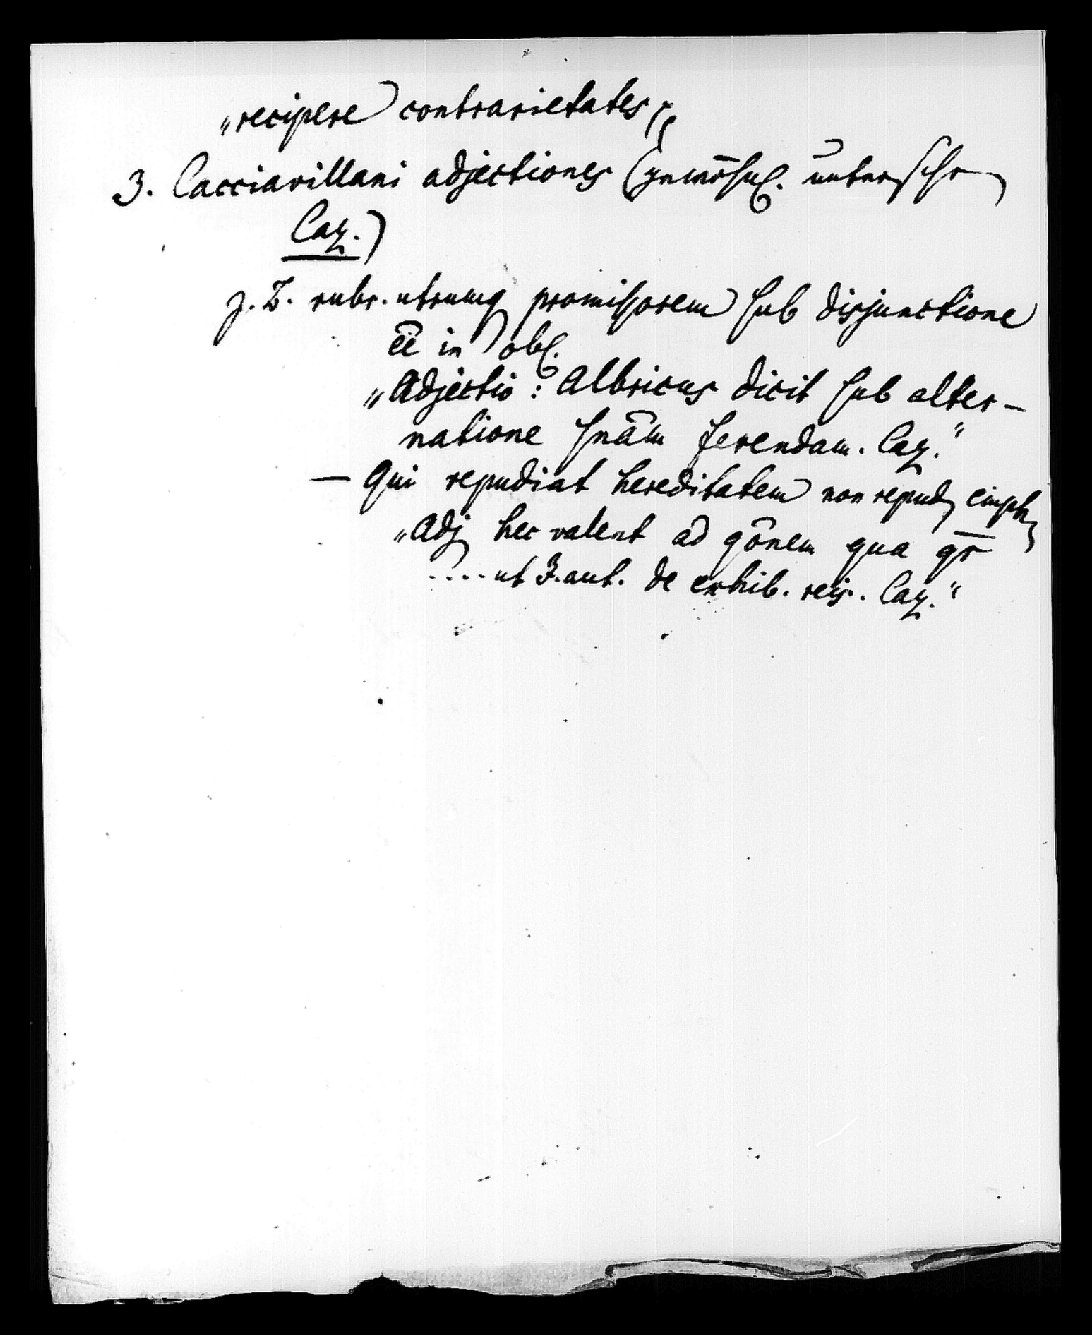 „recipere contrarietates“
3. Cacciavillani adjectiones (gewöhnl. unterschr
Caz.)
z. B. rubr. utrumq promissorem sub disjunctione
ēē in obl.
„Adjectio: Albricus dicit sub alter-
natione snām ferendam. Caz.“
— Qui repudiat hereditatem non repud emph
„Adj hec valent ad qōnem qua qr
.... ut J. aut. de exhib. reis. Caz.“